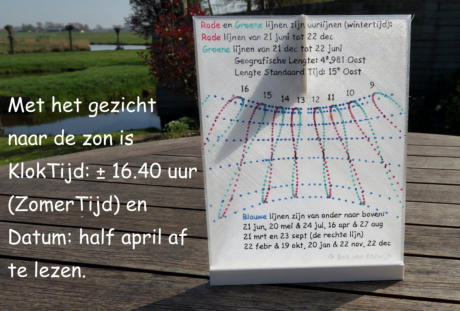 Met het gezicht
naar de zon is
KlokTijd: ± 16.40 uur
(ZomerTijd) en
Datum: half april af
te lezen.
Rode en Groene lijnen zijn uurlijnen (wintertijd):
Rode lijnen van 21 juni tot 22 dec
Groene lijnen van 21 dec tot 22 juni
Geografische Lengte: 4°,981 Oost
Lengte Standaard Tijd: 15° Oost
16 15 14 13 12 11 10 9
Blauwe lijnen zijn van onder naar boven:
21 jun, 20 mei & 24 jul, 16 apr & 27 aug
21 mrt en 23 sept (de rechte lijn)
22 febr & 19 okt, 20 jan & 22 nov, 22 dec